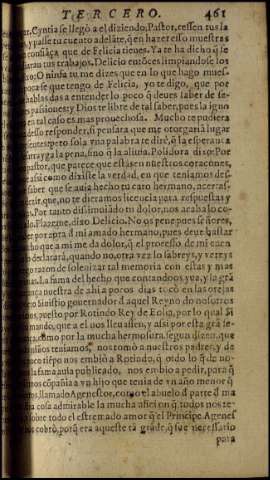 TERCERO. 461
Cyntia se llegò a el diziendo, Pastor, cessen tus la
y passe tu cuento adelãte, q̃ en hazer esso muestras
confiãça que de Felicia tienes. Ya te ha dicho q̃ se
tus trabajos. Delicio entõces limpiandose los
O ninfa tu me dizes que en lo que hago mues-
que tengo de Felicia, yo te digo, que por
hablas das a entender lo poco q̃ deues saber de se-
passiones y Dios te libre de tal saber, pues la igno
en tal caso es mas prouechosa. Mucho te pudiera
desso responder, si pensara que me otorgaria lugar
pero sola vna palabra te dirè, q̃ la esperança
y a la pena, sino q̃ la aliuia. Polidora dixo: Por
pastor, que parece que estàs en nuestros coraçones,
assi como dixiste la verdad, en que teniamos des-
saber que se auia hecho tu caro hermano, acertas-
dezir, que no te dieramos licencia para respuestas y
Por tanto dissimulado tu dolor, nos acaba lo co-
Plazeme, dixo Delicio. No os pene pues señores,
por agora d mi amado hermano, pues deue bastar
que a mi me da dolor, q̃ el processo de mi cuen
declararà, quando no, otra vez lo sabreys, y verrey
razon de solenizar tal memoria con estas y mas
la fama del hecho que contandoos yua, y la grã
nuestra de ahi a pocos dias tocò en las orejas
Sinistio governador d aquel Reyno do nosotros
vuelto por Rotindo Rey de Eolia, por lo qual si
mando, que a el nos lleuassen, y assi por esta grã se-
como por la mucha hermosura, segun dizen, que
teniamos, nos tomò a nuestros padres, y de
tiẽpo nos embiò a Rotindo, q̃ oido lo q̃ de no-
la fama auia publicado, nos embio a pedir, para q̃
cõpañia a vn hijo que tenia de vn año menor q̃
llamado Agenestor, como el abuelo d parte d ma
cosa admirable la mucha aficion q̃ todos nos te-
sobre todo el estremado amor q̃ el Principe Agenes
nos cobrò, porq̃ era aqueste tã grãde, q̃ fue necessario
para